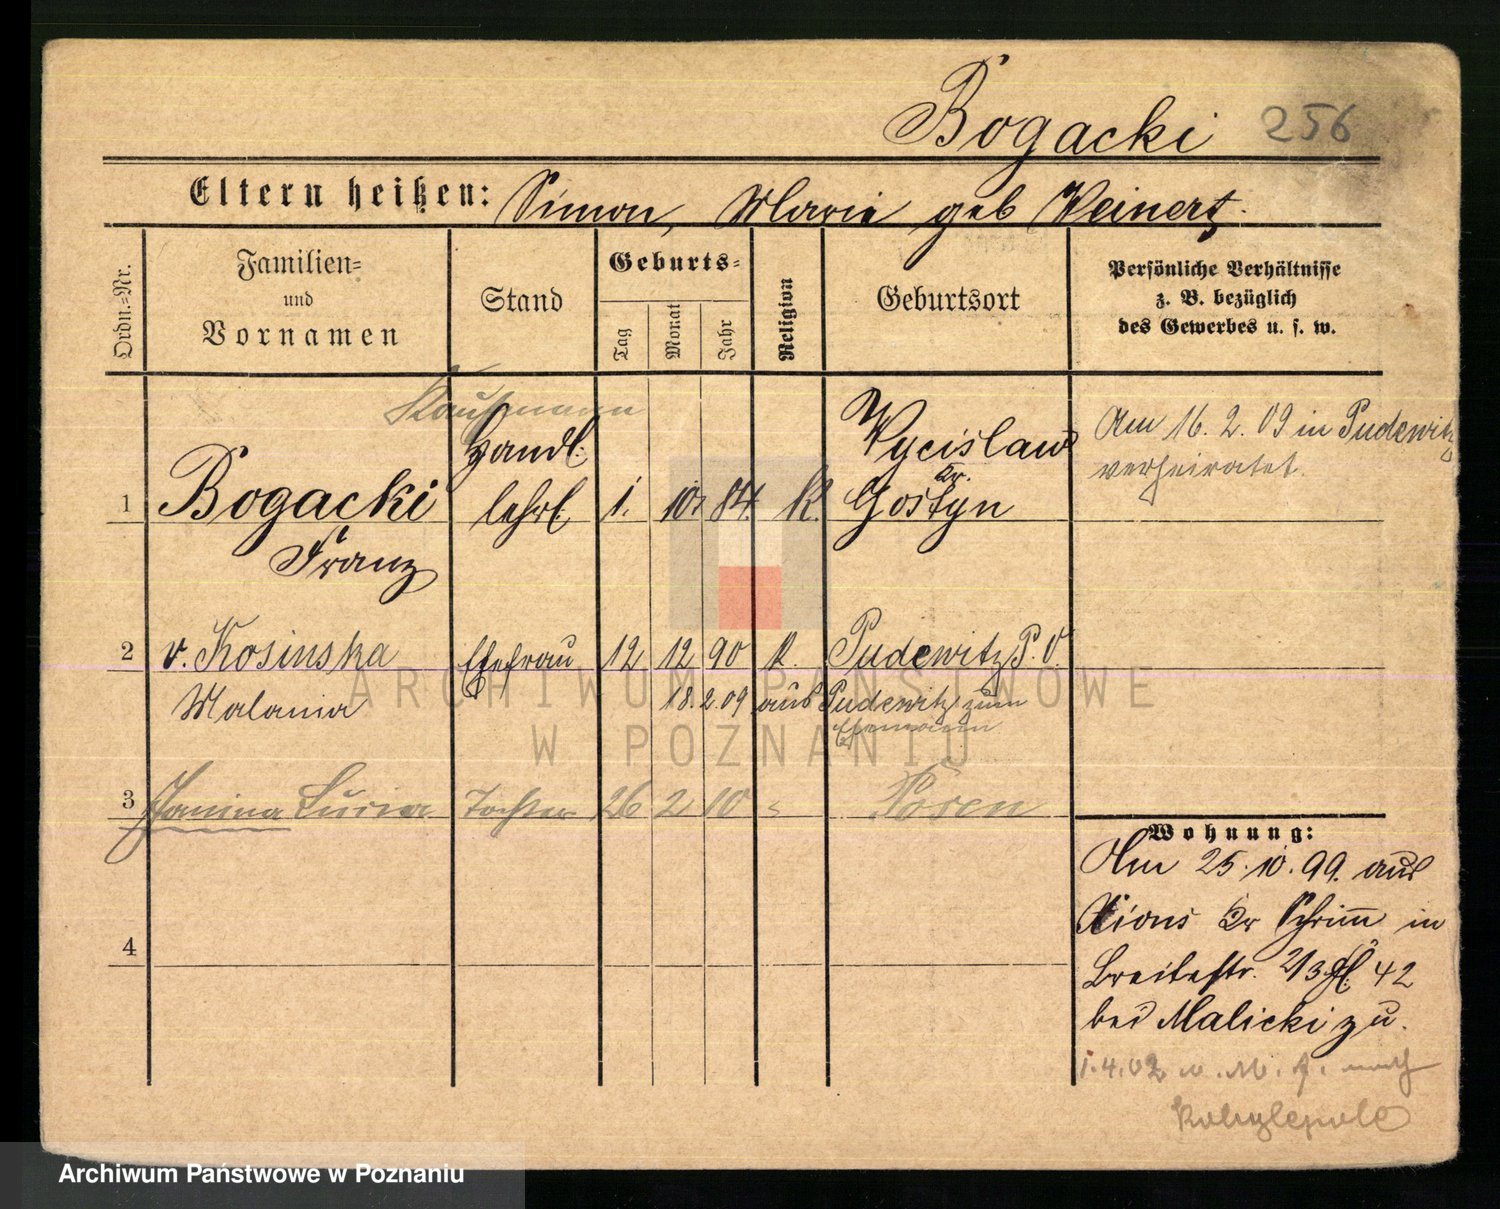 Bogacki 256
Eltern heißen: Simon, Marie geb Weinert.
Ordn.=Nr.
Familien=
und
Vornamen
Stand
Geburts=
Tag
Monat
Jahr
Religion
Geburtsort
Persönliche Verhältnisse
z. B. bezüglich
des Gewerbes u. s. w.
Kaufmann
Handl.
1 Bogacki lehrl. 1. 10. 84. K.
Franz
Wycislaw
Kr.
Gostyn
Am 16. 2. 09 in Pudewitz
verheiratet.
2 v. Kosinska Ehefrau 12 12 90 K. Pudewitz P. O.
Malania 18. 2. 09 aus Pudewitz zum
Ehemann
3 Janina Lucia Tochter 26 2 10 Posen
4
Wohnung:
Am 25. 10. 99. aus
Xions Kr Schrimm in
Breitestr. 42
bei Malicki zu.
1. 4. 02 n. M. f. nach
Kobylepole
ARCHIWUM PAŃSTWOWE
W POZNANIU
Archiwum Państwowe w Poznaniu